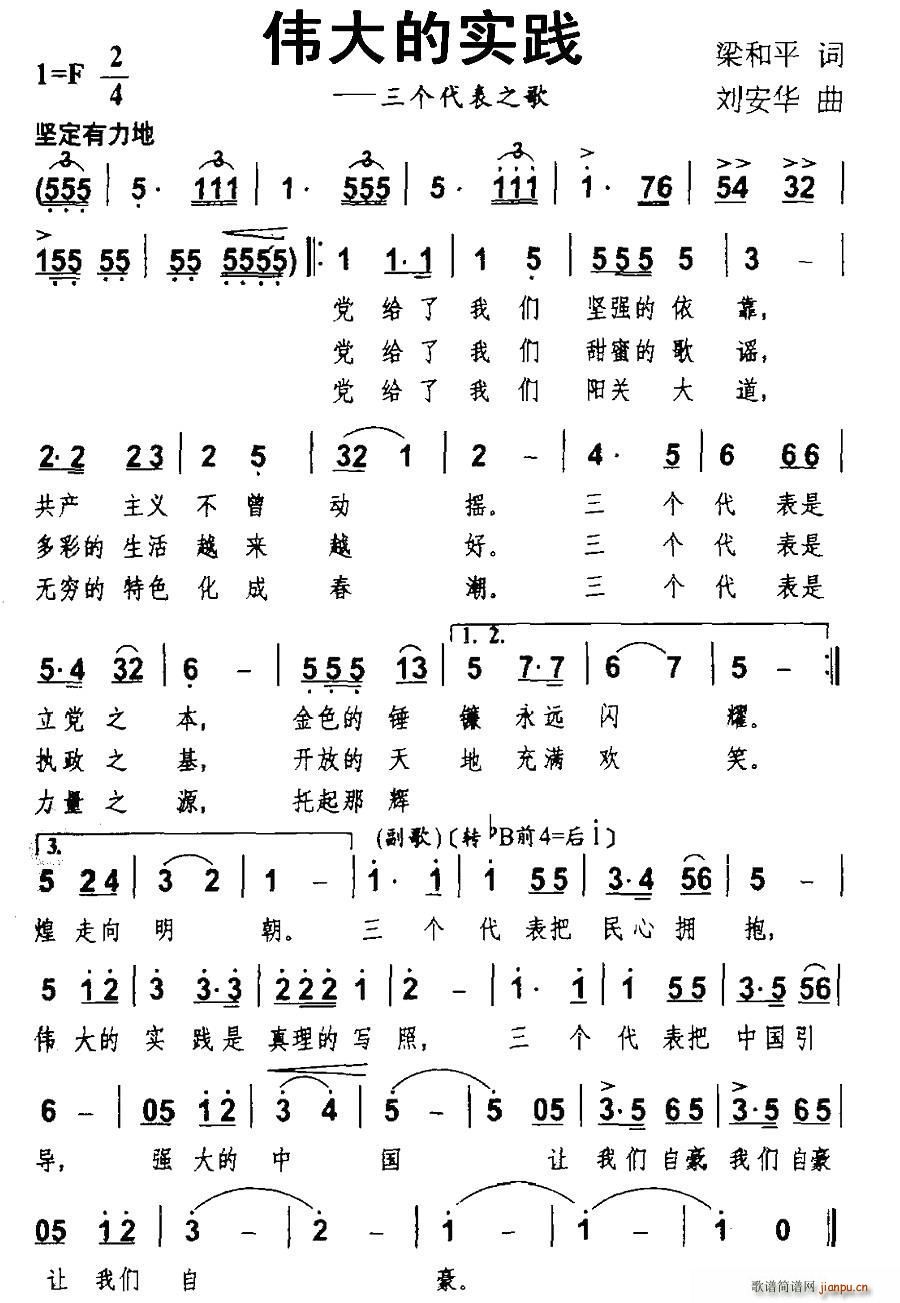 伟大的实践
——三个代表之歌
梁和平 词
刘安华 曲
1=F 2/4
坚定有力地
(555 | 5· 111 | 1· 555 | 5· 111 | 1· 76 | 54 32 |
155 55 | 55 5555) |: 1 1·1 | 1 5 | 555 5 | 3 - |
党 给 了 我 们 坚强的 依 靠,
党 给 了 我 们 甜蜜的 歌 谣,
党 给 了 我 们 阳关 大 道,
2·2 23 | 2 5 | 32 1 | 2 - | 4· 5 | 6 66 |
共产 主义 不 曾 动 摇。 三 个 代 表是
多彩的 生活 越 来 越 好。 三 个 代 表是
无穷的 特色 化 成 春 潮。 三 个 代 表是
1. 2.
5·4 32 | 6 - | 555 13 | 5 7·7 | 6 7 | 5 - :|
立党 之 本, 金色的 锤 镰 永远 闪 耀。
执政 之 基, 开放的 天 地 充满 欢 笑。
力量 之 源, 托起那 辉
3. (副歌)〔转♭B前4=后i〕
5 24 | 3 2 | 1 - | 1· 1 | 1 55 | 3·4 56 | 5 - |
煌 走向 明 朝。 三 个 代 表把 民心 拥 抱,
5 12 | 3 3·3 | 222 1 | 2 - | 1· 1 | 1 55 | 3·5 56 |
伟 大的 实 践是 真理的 写 照, 三 个 代 表把 中国 引
6 - | 05 12 | 3 4 | 5 - | 5 05 | 3·5 65 | 3·5 65 |
导, 强 大的 中 国 让 我们 自豪 我们 自豪
05 12 | 3 - | 2 - | 1 - | 1 - | 1 0 ||
让 我们 自 豪。
歌谱简谱网 jianpu.cn